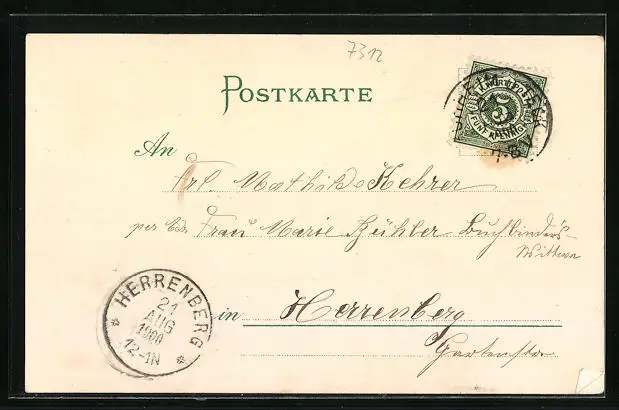 7312
POSTKARTE
K. WÜRTT. POST
5
FÜNF PFENNIG
An
Frl. Mathilde Kehrer
per Adr. Frau Marie Bühler Buchbinder's
Wittwe
in Herrenberg
HERRENBERG
21
AUG
1900
12-1N